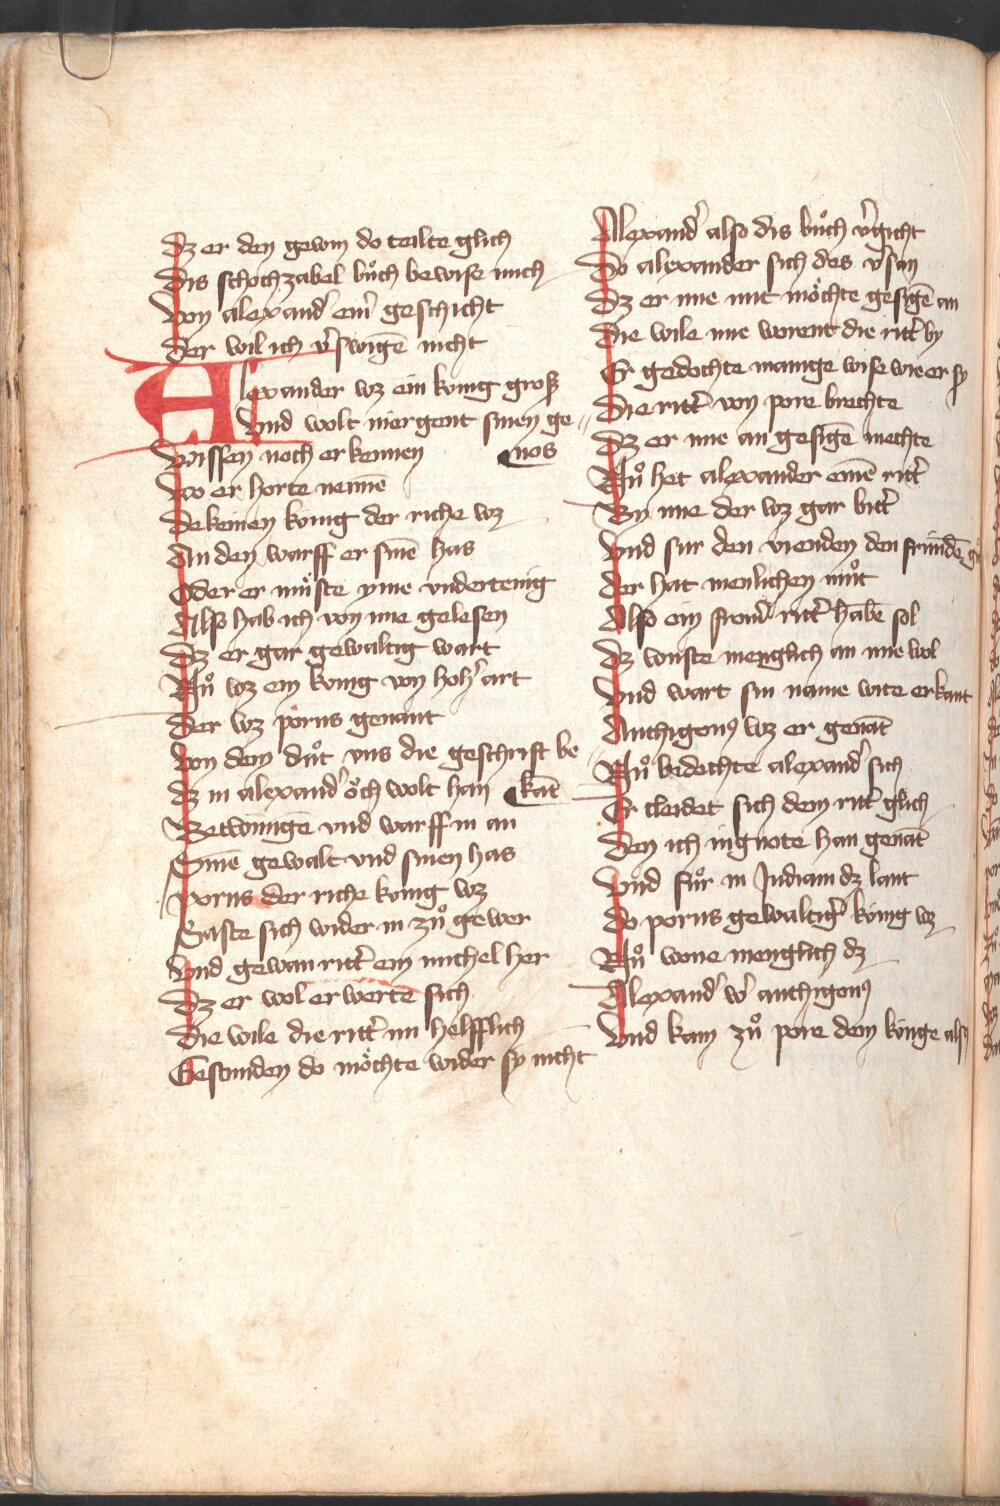 Dz er den gewin do teilte glich
Dis schochzabel bůch bewise mich
Von alexandˀ einˀ geschicht
Der wil ich vˀswigē nicht
Alexander wz ein konig groß
Vnd wolt niergent sinen ge
Wissen noch erkennen nos
Wo er horte nennē
Dekeinen konig der riche wz
An den warff er sinē has
Oder er mu̇ste yme vndertenig
Also hab ich von ime gelesen
Dz er gar gewaltig wart
Nů wz ein konig von hohˀ art
Der wz porus genant
Von dem důt vns die geschrift be
Dz in alexandˀ ȯch wolt han kāt
Betwingē vnd warff in an
Sinē gewalt vnd sinen has
Porus der riche konig wz
Saste sich wider in zů gewer
Vnd gewan rittˀ ein michel her
Dz er wol erwerte sich
Die wile die rittˀ im helfflich
Gestunden do mȯchte wider sy nicht
Alexandˀ also dis bůch vˀgicht
Do alexander sich des vˀsan
Dz er ime nut mȯchte gesigē an
Die wile ime worent die rittˀ by
Er gedochte manige wise wie er sy
Die rittˀ von pore brechte
Dz er ime an gesigē mechte
Nů het alexander einē rittˀ
By ime der wz gar bittˀ
Vnd sur den vienden den frundē
Der hat menlichen můt
Also ein fromˀ rittˀ habē sol
Dz wuste menglich an ime wol
Vnd wart sin name wite erkant
Anthigonꝰ wz er genāt
Nů bedochte alexandˀ sich
Er cleidet sich dem rittˀ glich
Den ich ingnote han genāt
Vnd fůr in Indiam dz lant
Do porus gewaltigˀ konig wz
Nů wone menglich dz
Alexandˀ wˀ anthigonꝰ
Vnd kam zů pore dem konge also